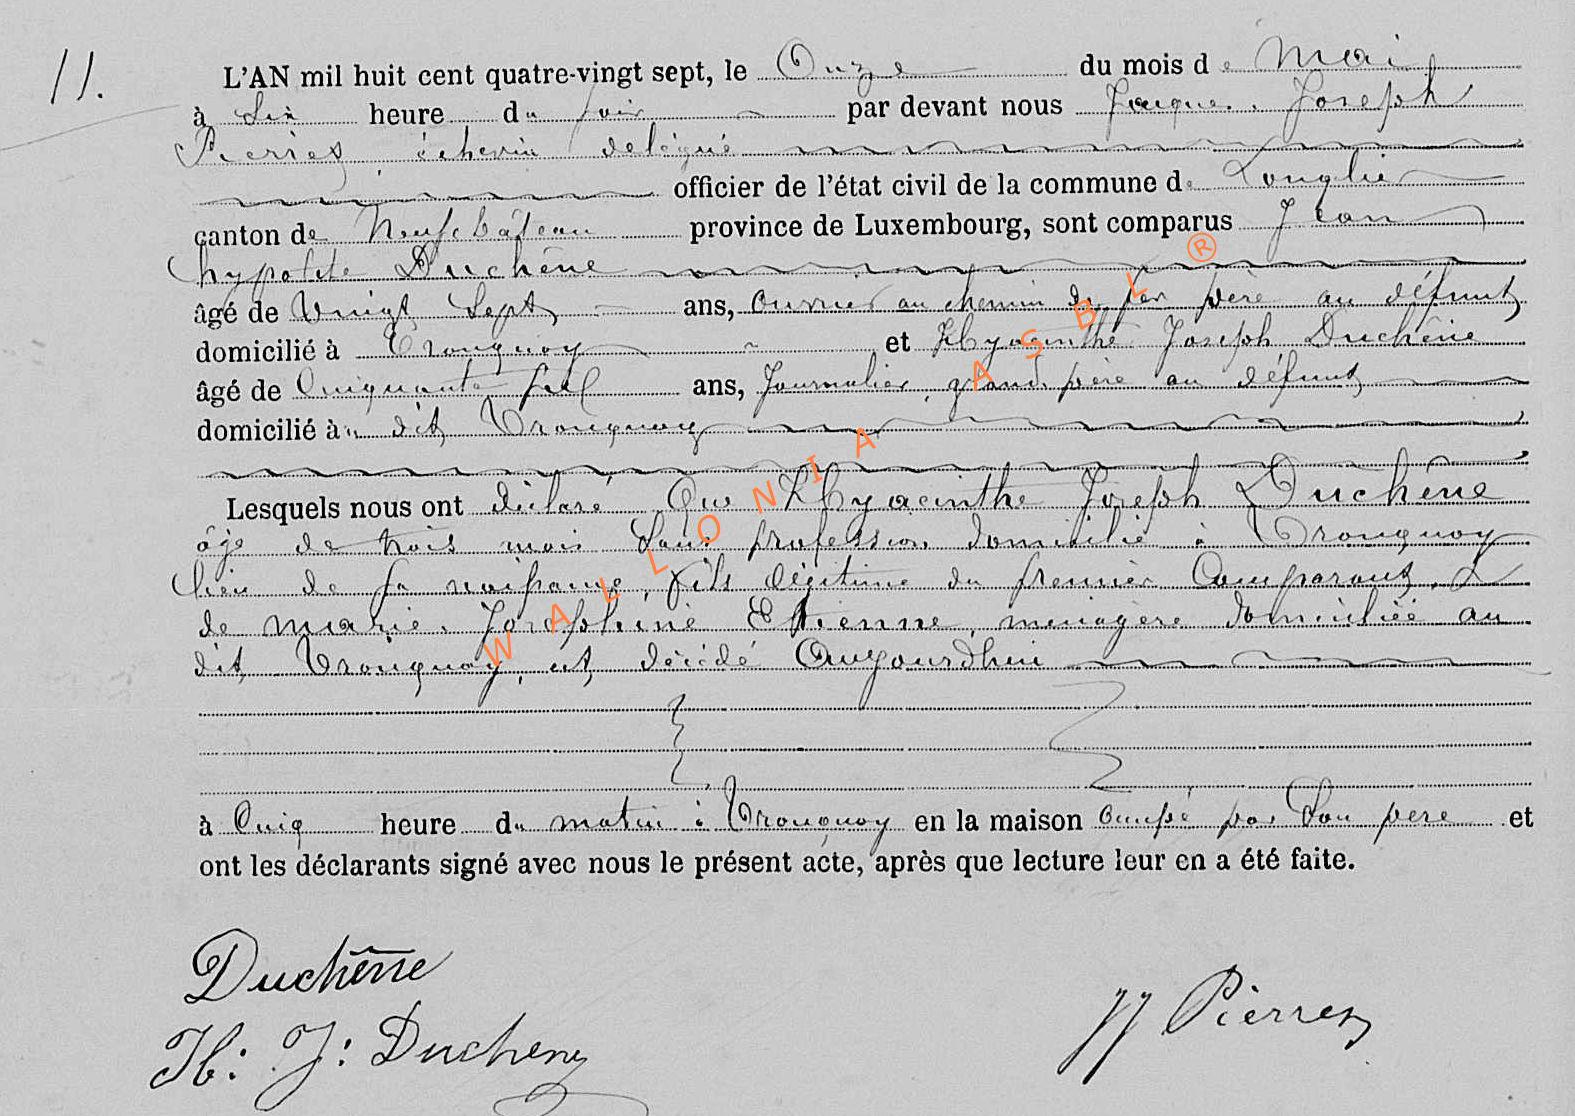 11.
L'AN mil huit cent quatre-vingt sept, le Onze du mois de Mai
à Six heure du soir par devant nous Jacques Joseph
Pierret échevin délégué
officier de l'état civil de la commune de Longlier
canton de Neufchâteau province de Luxembourg, sont comparus Jean
hypolite Duchêne
âgé de Vingt Sept ans, ouvrier au chemin de fer père au défunt
domicilié à Tronquoy et Hyacinthe Joseph Duchêne
âgé de Cinquante sept ans, Journalier, grand père au défunt
domicilié au dit Tronquoy
Lesquels nous ont déclaré Que Hyacinthe Joseph Duchêne
âge de trois mois Sans profession domicilié à Tronquoy
lieu de sa naissance, fils légitime du premier Comparant, &
de marie Joséphine Etienne, ménagère domiciliée au
dit Tronquoy, est décédé Aujourdhui
à Cinq heure du matin à Tronquoy en la maison occupé par Son père et
ont les déclarants signé avec nous le présent acte, après que lecture leur en a été faite.
Duchêne
H: J: Duchene
JJ Pierret
WALLONIA ASBL ®